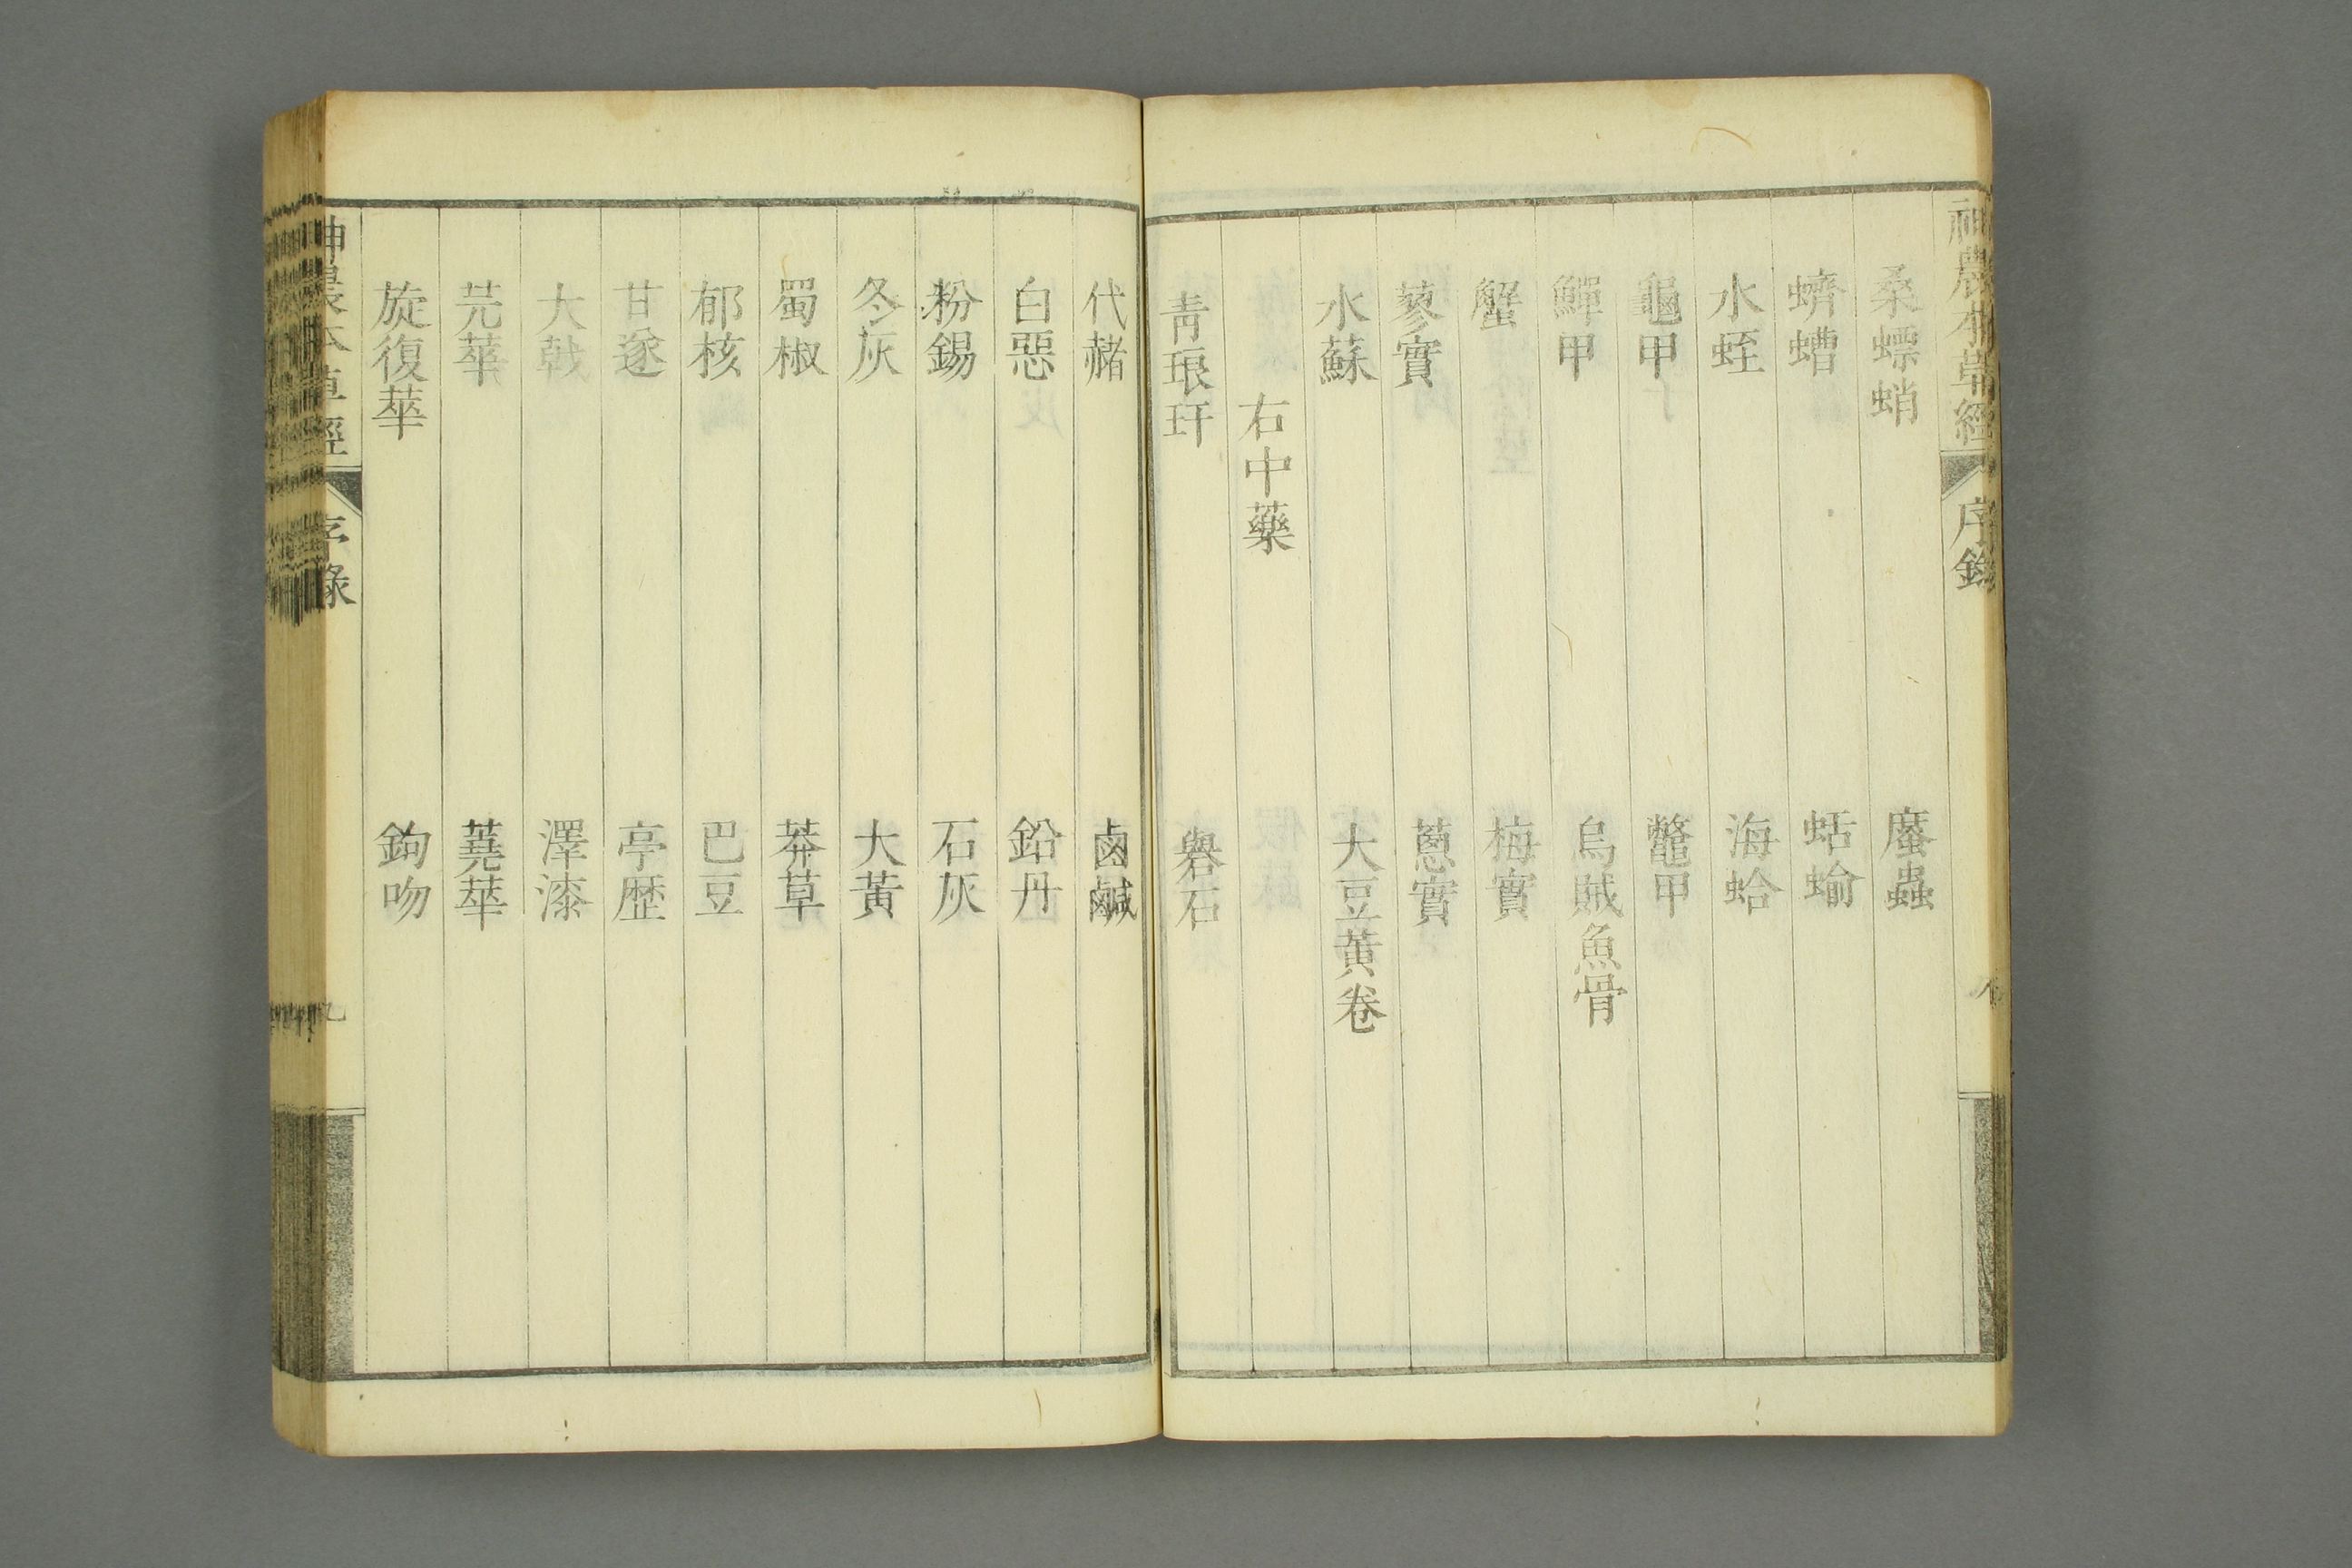 神農本草經 序錄 八
桑螵蛸 䗪蟲
蠐螬 蛞蝓
水蛭 海蛤
龜甲 鼈甲
鱓甲 烏賊魚骨
蟹 梅實
蓼實 蔥實
水蘇 大豆黃卷
右中藥
靑琅玕 礜石
代赭 鹵鹹
白惡 鉛丹
粉錫 石灰
冬灰 大黃
蜀椒 莽草
郁核 巴豆
甘遂 亭歷
大戟 澤漆
芫華 蕘華
旋復華 鉤吻
神農本草經 序錄 九